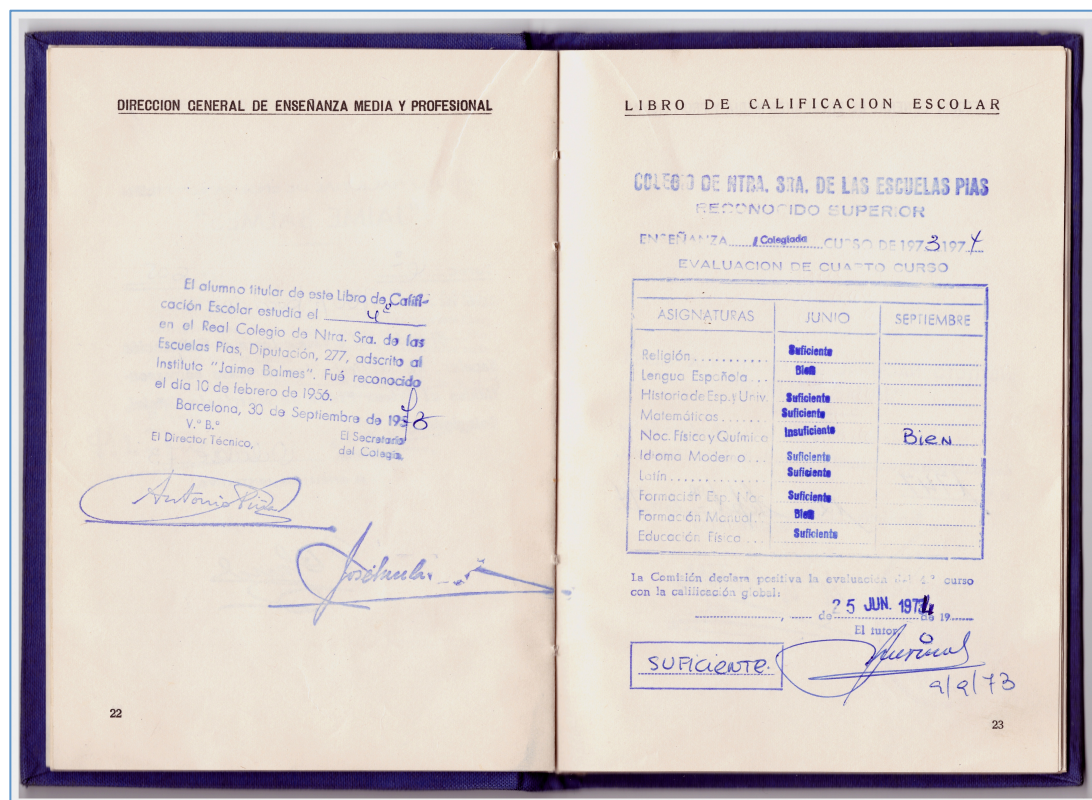 DIRECCION GENERAL DE ENSEÑANZA MEDIA Y PROFESIONAL
El alumno titular de este Libro de Califi-
cación Escolar estudia el 4º
en el Real Colegio de Ntra. Sra. de las
Escuelas Pías, Diputación, 277, adscrito al
Instituto "Jaime Balmes". Fué reconocido
el día 10 de febrero de 1956.
Barcelona, 30 de Septiembre de 19
V.º B.º
El Director Técnico,
El Secretario
del Colegio,
Antonio
22
LIBRO DE CALIFICACION ESCOLAR
COLEGIO DE NTRA. SRA. DE LAS ESCUELAS PIAS
RECONOCIDO SUPERIOR
ENSEÑANZA Colegiada CURSO DE 1973 1974
EVALUACION DE CUARTO CURSO
ASIGNATURAS JUNIO SEPTIEMBRE
Religión Suficiente
Lengua Española Bien
Historia de Esp. y Univ. Suficiente
Matemáticas Suficiente
Noc. Físico y Química Insuficiente Bien
Idioma Moderno Suficiente
Latín Suficiente
Formación Esp. Nac. Suficiente
Formación Manual Bien
Educación Física Suficiente
La Comisión declara positiva la evaluación del curso
con la calificación global:
de 25 JUN. 1974 de 19
El tutor
SUFICIENTE.
9/9/73
23